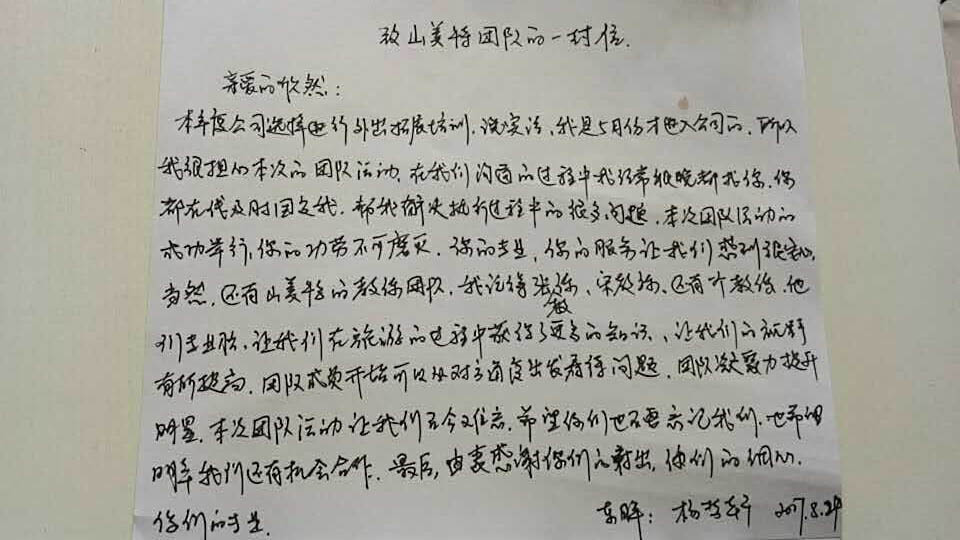 致山美特团队的一封信.
亲爱的悠然:
本年度公司选择进行外出拓展培训.说实话,我是5月份才进入公司的.所以
我很担心本次的团队活动,在我们沟通的过程中我经常很晚都找你.你
都在线及时回复我.帮我解决执行过程中的很多问题.本次团队活动的
成功举行,你的功劳不可磨灭.你的专业,你的服务让我们感到很安心.
当然,还有山美特的教练团队.我记得张教练、宋教练、还有于教练.他
们专业性,让我们在旅游的过程中获得了更多的知识、让我们的视野
有所提高.团队成员开始可以从对方角度出发看待问题.团队凝聚力提升
明显.本次团队活动让我们至今难忘.希望你们也不要忘记我们.也希望
明年我们还有机会合作.最后,由衷感谢你们的付出,你们的细心.
你们的专业. 东晖: 2017.8.24